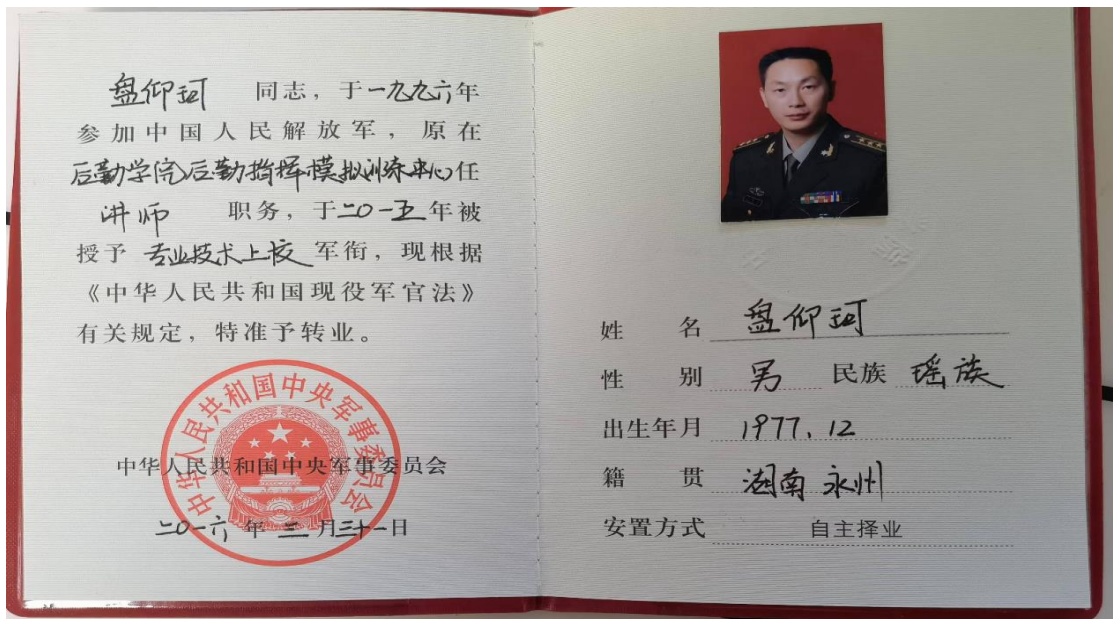 盘仰珂 同志，于一九九六年
参加中国人民解放军，原在
后勤学院后勤指挥模拟训练中心任
讲师 职务，于二0一五年被
授予 专业技术上校 军衔，现根据
《中华人民共和国现役军官法》
有关规定，特准予转业。
中华人民共和国中央军事委员会
中华人民共和国中央军事委员会
二0一六年三月三十一日
姓 名 盘仰珂
性 别 男 民族 瑶族
出生年月 1977.12
籍 贯 湖南永州
安置方式 自主择业